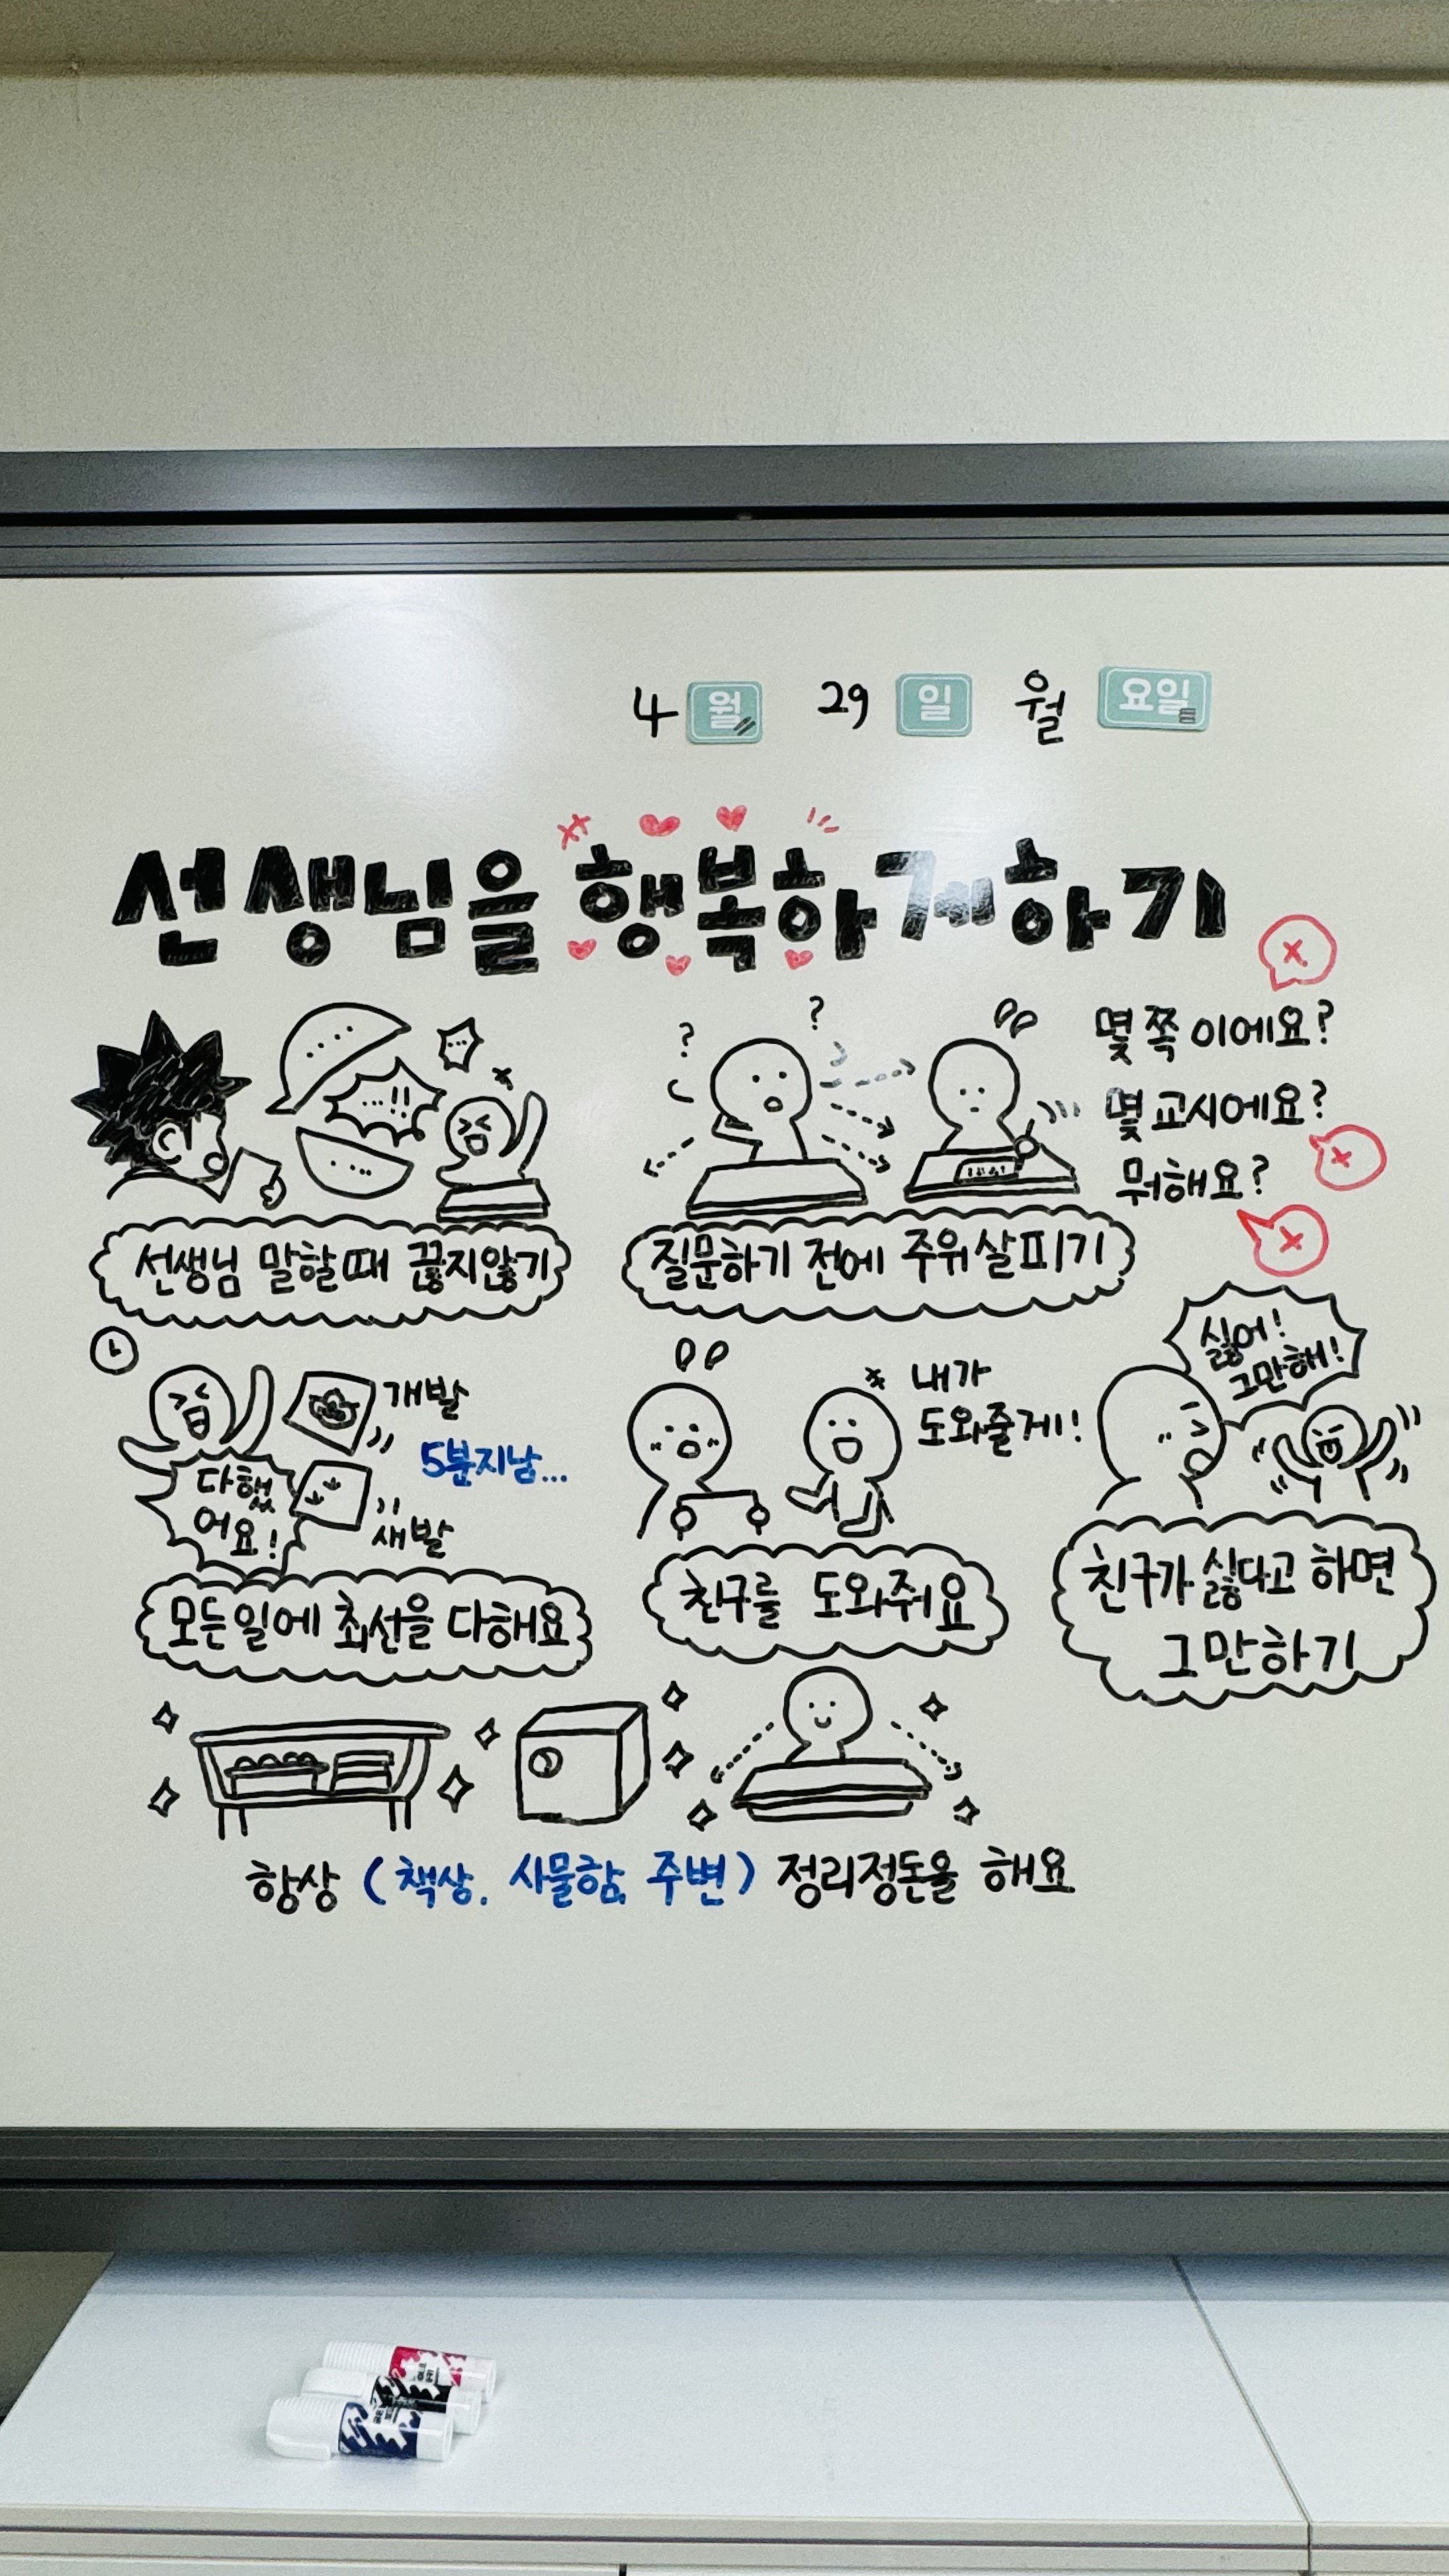 4월 29일 월요일
선생님을 행복하게하기
몇 쪽이에요?
몇 교시에요?
뭐해요?
선생님 말할때 끊지않기
질문하기 전에 주위살피기
개발
5분지남...
다했
어요!
새발
모든일에 최선을 다해요
내가
도와줄게!
친구를 도와줘요
싫어!
그만해!
친구가 싫다고 하면
그만하기
항상 (책상, 사물함, 주변) 정리정돈을 해요